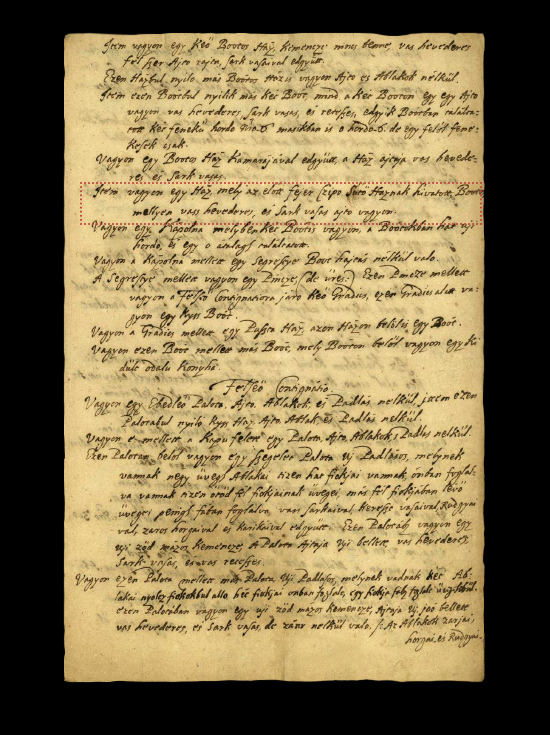 Item vagyon egy Keö BoltosHáz, Kemencze nincs benne, vas hevederes
fel szer Ajto rajta, sark vasaival edgyütt.
Ezen Házbul nyilo más Boltos Ház is vagyon Ajto és Ablakok nélkül.
Item ezen Boltbul nyilik más két Bolt, mind a két Bolton egy egy Ajto
vagyon vas hevederes, sark vasas, és reteszes, edgyik Boltban találta-
tott két fenekü hordo No. 6. masikban is 0 hordo 6. de egy felöl fene-
kesek csak.
Vagyon egy Boltos Ház Kamarájával edgyütt, a Ház ajtaja vas hevede-
res és Sark vasas.
Item vagyon egy Ház mely az elött fejér Czipo Sütö Háznak hivatott, Boltos
mellyen vass hevederes, es Sark vasas ajto vagyon.
Vagyon egy Kápolna melyben két Boltos vagyon, a Boltokban hat uj
hordo, és egy átalag találtatott.
Vagyon a Kápolna mellett egy Segrestye Bolt hajtás nélkül való.
A Segrestye mellett vagyon egy Pincze, (de üres.) Ezen Pincze mellett
vagyon a Felsö Contignatiora járó Keö Gradics, ezen Gradics alatt va-
gyon egy kyss Bolt.
Vagyon a Gradics mellett egy Puszta Ház, azon Házon belöl egy Bolt.
Vagyon ezen Bolt mellett más Bolt, mely Bolton belöl vagyon egy Ki
dült oldalu Konyha.
Felseö Contignátio.
Vagyon egy Ebedleö Palota, Ajto Ablakok, és Padlás nélkül, item ezen
Palotábul nyiló kyss Ház, Ajto Ablak, és Padlás nélkül.
Vagyon e mellett a Kapu felett egy Palota, Ajto, Ablakok, Padlás nélkül.
Ezen Palotán belöl vagyon egy Szegelet Palota Uj Padlásos, melynek
vannak négy üveg Ablakai tizen hat fiokjai vannak, ónban foglal-
va vannak tizen ötöd fél fiokjainak üvegei, más fél fiokjában lévö
üvegei penigh fában foglalva, vas sarkaival, Retesze vasaival, Rudgyai
val, záros horgaival és karikáival edgyütt. Ezen Palotában vagyon egy
uj zöld mázos kemencze, A Palota Ajtaja Uj bellett, vas hevederes,
Sark vasas, és vas reteszes.
Vagyon ezen Palota mellett más Palota Uj Padlásos, melynek vadnak két Ab-
lakai nyolcz fiokokbul álló hét fiokjai ónban foglalt, egy fiokja fába foglalt üvegekbül.
ezen Palotában vagyon egy uj zöld mázos kemencze, Ajtaja Uj, jóó bellett
vas hevederes, és Sark vasas, de zár nélkül való. Az Ablakok zárjai,
horgai, és Rudgyai.